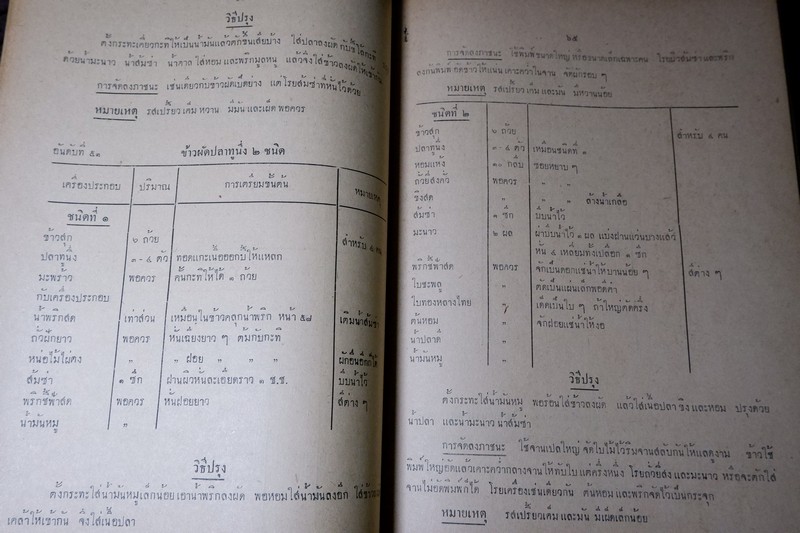 วิธีปรุง
ตั้งกระทะเคี่ยวกะทิให้เป็นน้ำมันแล้วตักขึ้นเสียบ้าง ใส่ปลาลงผัด กับขี้โล้กะทิ
ด้วยน้ำมะนาว น้ำส้มซ่า น้ำตาล ใส่หอมและพริกมูลหนู แล้วจึงใส่ข้าวลงผัดให้เข้ากัน
การจัดลงภาชนะ เช่นเดียวกับข้าวผัดเป็ดย่าง แต่โรยส้มซ่าที่หั่นไว้ด้วย
หมายเหตุ รสเปรี้ยว เค็ม หวาน มีมัน และเผ็ด พอควร
อันดับที่ ๕๑ ข้าวผัดปลาทูนึ่ง ๒ ชนิด
เครื่องประกอบ ปริมาณ การเตรียมขั้นต้น หมายเหตุ
ชนิดที่ ๑
ข้าวสุก ๖ ถ้วย สำหรับ ๔ คน
ปลาทูนึ่ง ๓-๔ ตัว ทอดแกะเนื้อออกยีให้แหลก
มะพร้าว พอควร คั้นกะทิให้ได้ ๑ ถ้วย
กับเครื่องประกอบ
น้ำพริกสด เท่าส่วน เหมือนในข้าวคลุกน้ำพริก หน้า ๕๘ เติมน้ำส้มซ่า
ถั่วฝักยาว พอควร หั่นเฉียงยาว ๆ ต้มกับกะทิ
หน่อไม้ไผ่ตง " " ฝอย " " " ผักอื่นอีกก็ได้
ส้มซ่า ๑ ซีก ฝานผิวหั่นละเอียดราว ๑ ช.ช. บีบน้ำไว้
พริกชี้ฟ้าสด พอควร หั่นฝอยยาว สีต่าง ๆ
น้ำมันหมู "
วิธีปรุง
ตั้งกระทะใส่น้ำมันหมูเล็กน้อย เอาน้ำพริกลงผัด พอหอมใส่น้ำมันลงอีก ใส่ข้าว
เคล้าให้เข้ากัน จึงใส่เนื้อปลา
๖๕
การจัดลงภาชนะ ใช้พิมพ์ขนาดใหญ่ หรือขนาดเล็กเฉพาะคน โรยผิวส้มซ่าและพริก
ลงก้นพิมพ์ อัดข้าวให้แน่น เคาะคว่ำในจาน จัดผักรอบ ๆ
หมายเหตุ รสเปรี้ยว เค็ม และมัน มีหวานน้อย
ชนิดที่ ๒
ข้าวสุก ๖ ถ้วย สำหรับ ๔ คน
ปลาทูนึ่ง ๓-๔ ตัว เหมือนชนิดที่ ๑
หอมแห้ง ๑๐ กลีบ ซอยหยาบ ๆ
ถั่วลิสงคั่ว พอควร " "
ขิงสด " " " ล้างน้ำเกลือ
ส้มซ่า ๑ ซีก บีบน้ำไว้
มะนาว ๒ ผล ผ่าบีบน้ำไว้ ๑ ผล แบ่งฝานแว่นบางแล้ว
หั่น ๔ เหลี่ยมทั้งเปลือก ๑ ซีก
พริกชี้ฟ้าสด พอควร จักเป็นดอกแช่น้ำให้บานน้อย ๆ สีต่าง ๆ
ใบชะพลู " ตัดเป็นแผ่นเล็กพอดีคำ
ใบทองหลางไทย " เด็ดเป็นใบ ๆ ถ้าใหญ่ตัดครึ่ง
ต้นหอม " จักฝอยแช่น้ำให้งอ
น้ำปลาดี "
น้ำมันหมู "
วิธีปรุง
ตั้งกระทะใส่น้ำมันหมู พอร้อนใส่ข้าวลงผัด แล้วใส่เนื้อปลา ขิง และหอม ปรุงด้วย
น้ำปลา และน้ำมะนาว น้ำส้มซ่า
การจัดลงภาชนะ ใช้จานเปลใหญ่ จัดใบไม้ไว้ริมจานสลับกันให้แลดูงาม ข้าวใช้
พิมพ์ใหญ่อัดแล้วเคาะคว่ำกลางจานให้ทับใบ แต่ครึ่งหนึ่ง โรยถั่วลิสง และมะนาว หรือจะตักใส่
จานไม่อัดพิมพ์ก็ได้ โรยเครื่องเช่นเดียวกัน ต้นหอม และพริกจัดไว้เป็นกระจุก
หมายเหตุ รสเปรี้ยว เค็ม และมัน มีเผ็ดเล็กน้อย